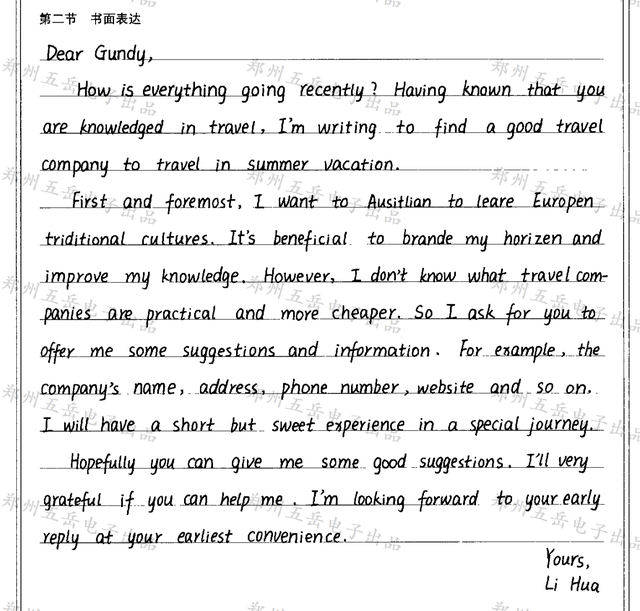 第二节 书面表达
Dear Gundy,
How is everything going recently? Having known that you
are knowledged in travel, I'm writing to find a good travel
company to travel in summer vacation.
First and foremost, I want to Ausitlian to leare Europen
triditional cultures. It's beneficial to brande my horizen and
improve my knowledge. However, I don't know what travel com-
panies are practical and more cheaper. So I ask for you to
offer me some suggestions and information. For example, the
company's name, address, phone number, website and so on.
I will have a short but sweet experience in a special journey.
Hopefully you can give me some good suggestions. I'll very
grateful if you can help me. I'm looking forward to your early
reply at your earliest convenience.
Yours,
Li Hua
郑州五岳电子出品